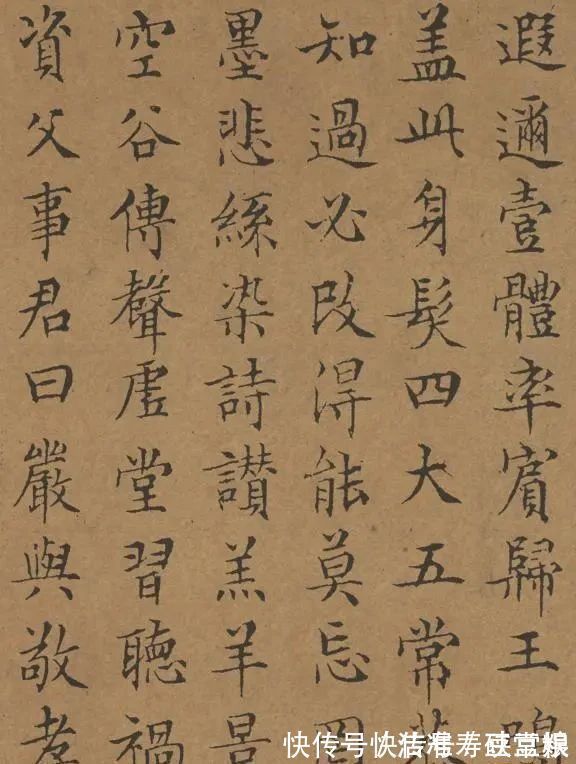 遐邇壹體率賓歸王鳴
盖此身髮四大五常
知過必改得能莫忘罔
墨悲絲染詩讃羔羊景
空谷傳聲虛堂習聽禍
資父事君曰嚴與敬孝
快传号